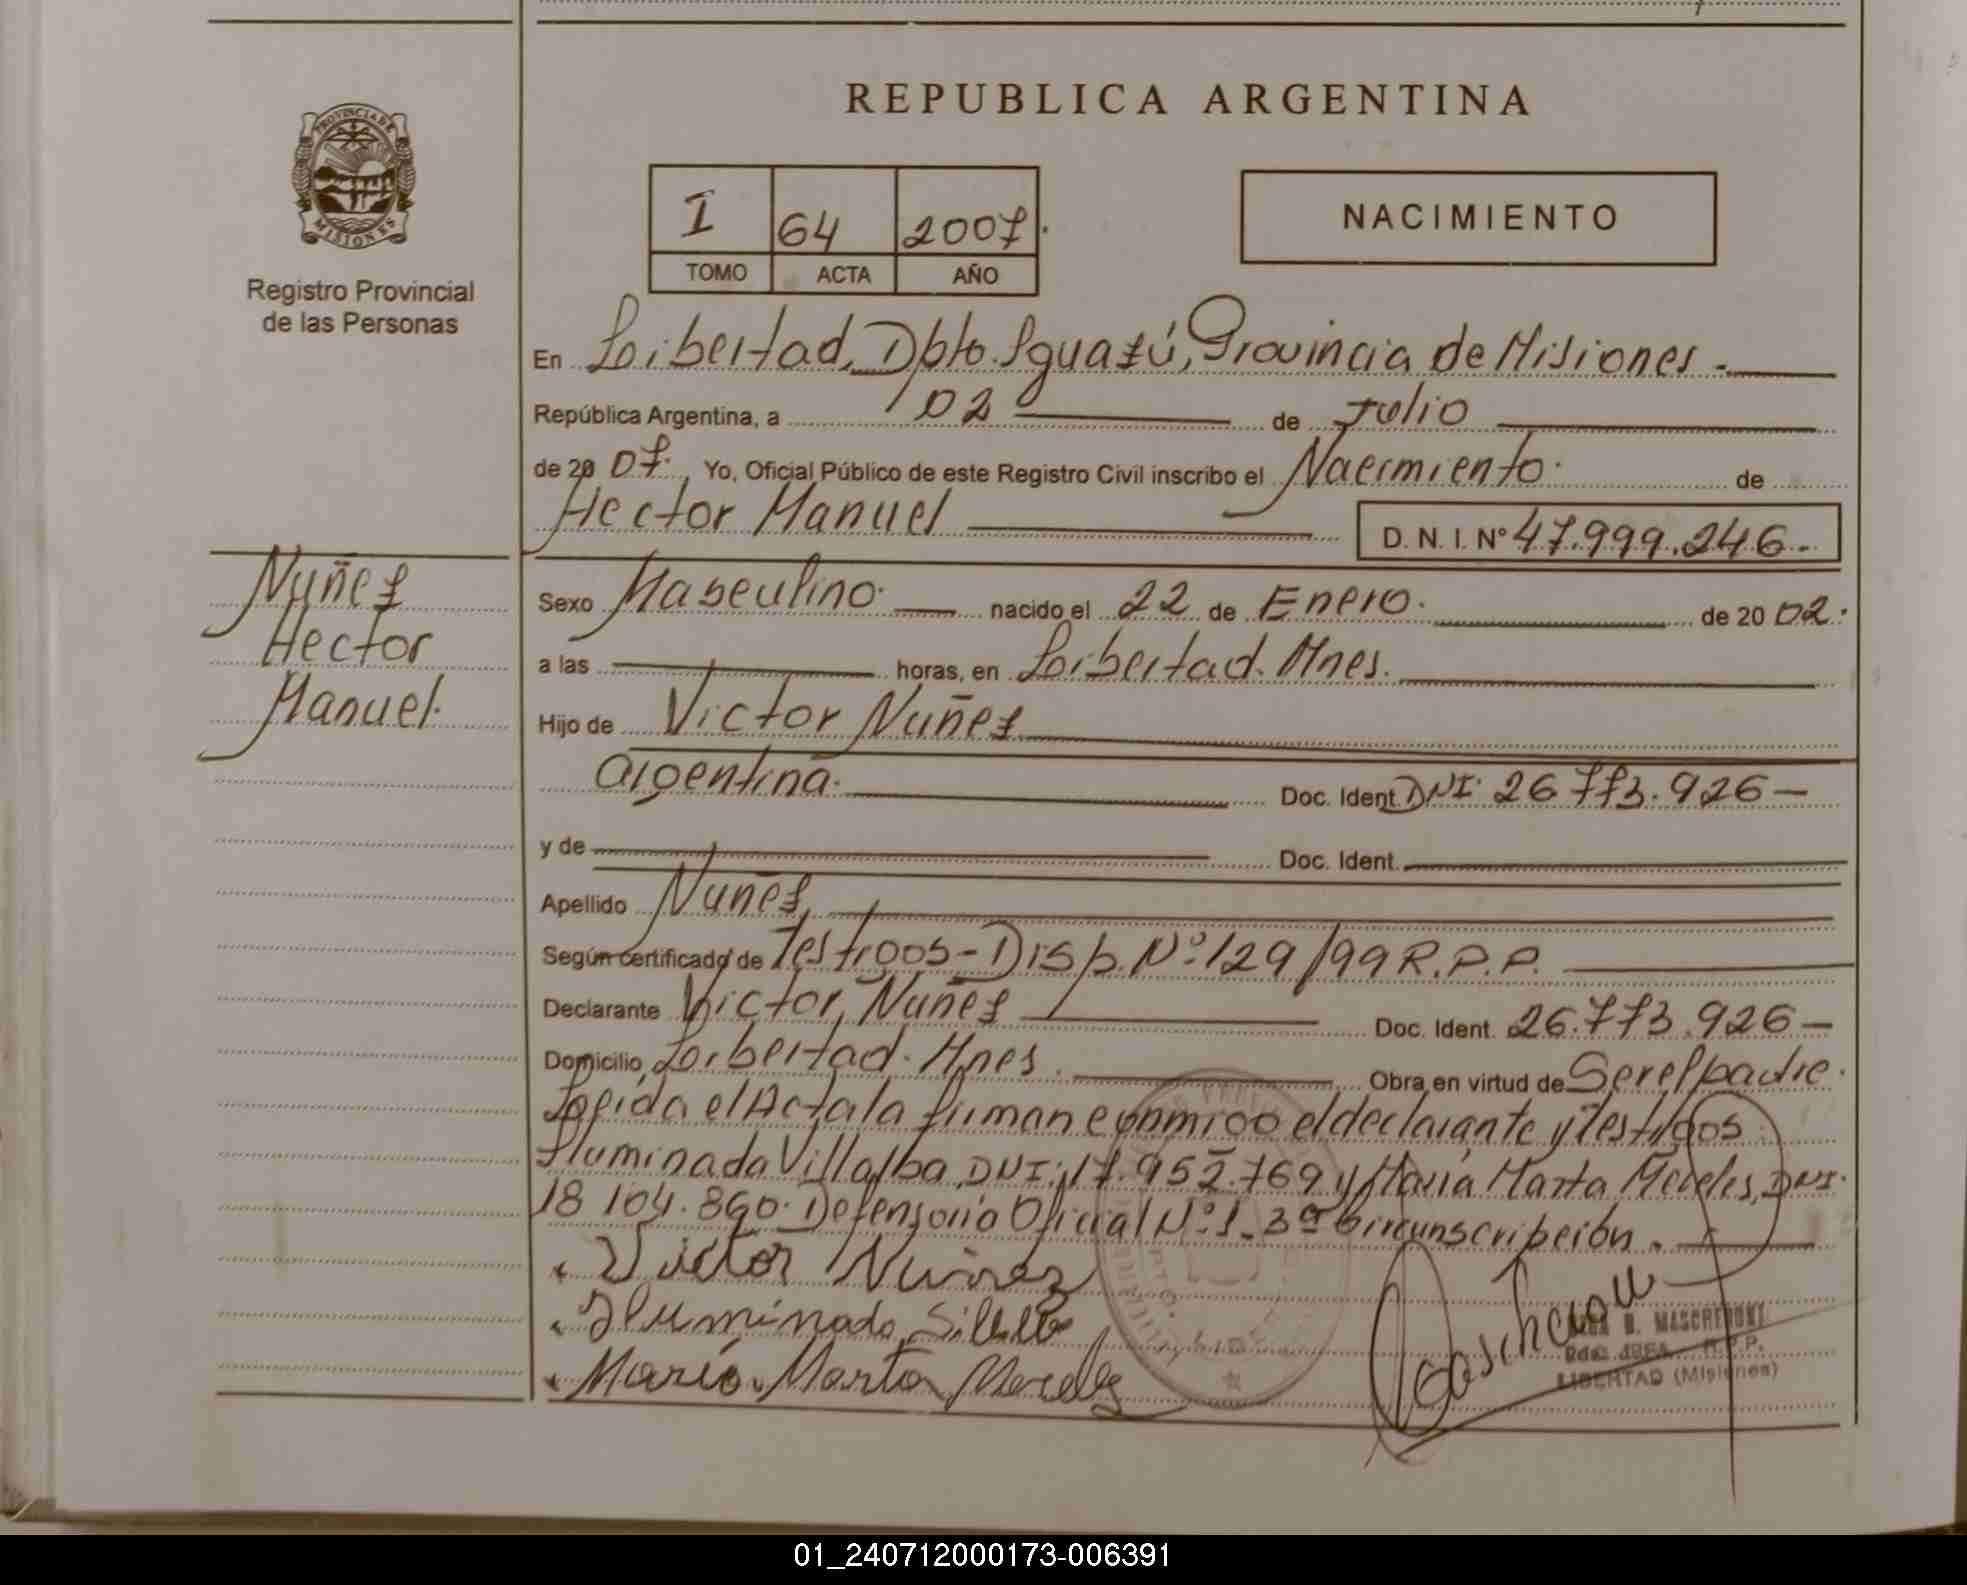 REPUBLICA ARGENTINA
PROVINCIA DE
MISIONES
Registro Provincial
de las Personas
I 64 2007.
TOMO ACTA AÑO
NACIMIENTO
En Libertad, Dpto. Iguazú, Provincia de Misiones.-
República Argentina, a 02 de Julio
de 20 07. Yo, Oficial Público de este Registro Civil inscribo el Nacimiento. de
Hector Manuel D. N. I. Nº 47.999.246-
Nuñez
Hector
Manuel.
Sexo Masculino. nacido el 22 de Enero. de 20 02.
a las horas, en Libertad. Mnes.
Hijo de Victor Nuñez
Argentina. Doc. Ident. DNI. 26.773.926-
y de Doc. Ident.
Apellido Nuñez
Según certificado de Testigos- Disp. Nº 129/99 R.P.P.
Declarante Victor Nuñez Doc. Ident. 26.773.926-
Domicilio Libertad. Mnes. Obra en virtud de Ser el padre.
Leída el Acta la firman conmigo el declarante y testigos
Iluminada Villalba, DNI: 17.952.769 y María Marta Mereles, DNI.
18 104.860. Defensoria Oficial Nº 1- 3ª Circunscripción.
Victor Nuñez
Iluminada
Maria Marta Mereles
MASCHERONI
R.P.P.
LIBERTAD (Misiones)
01_240712000173-006391